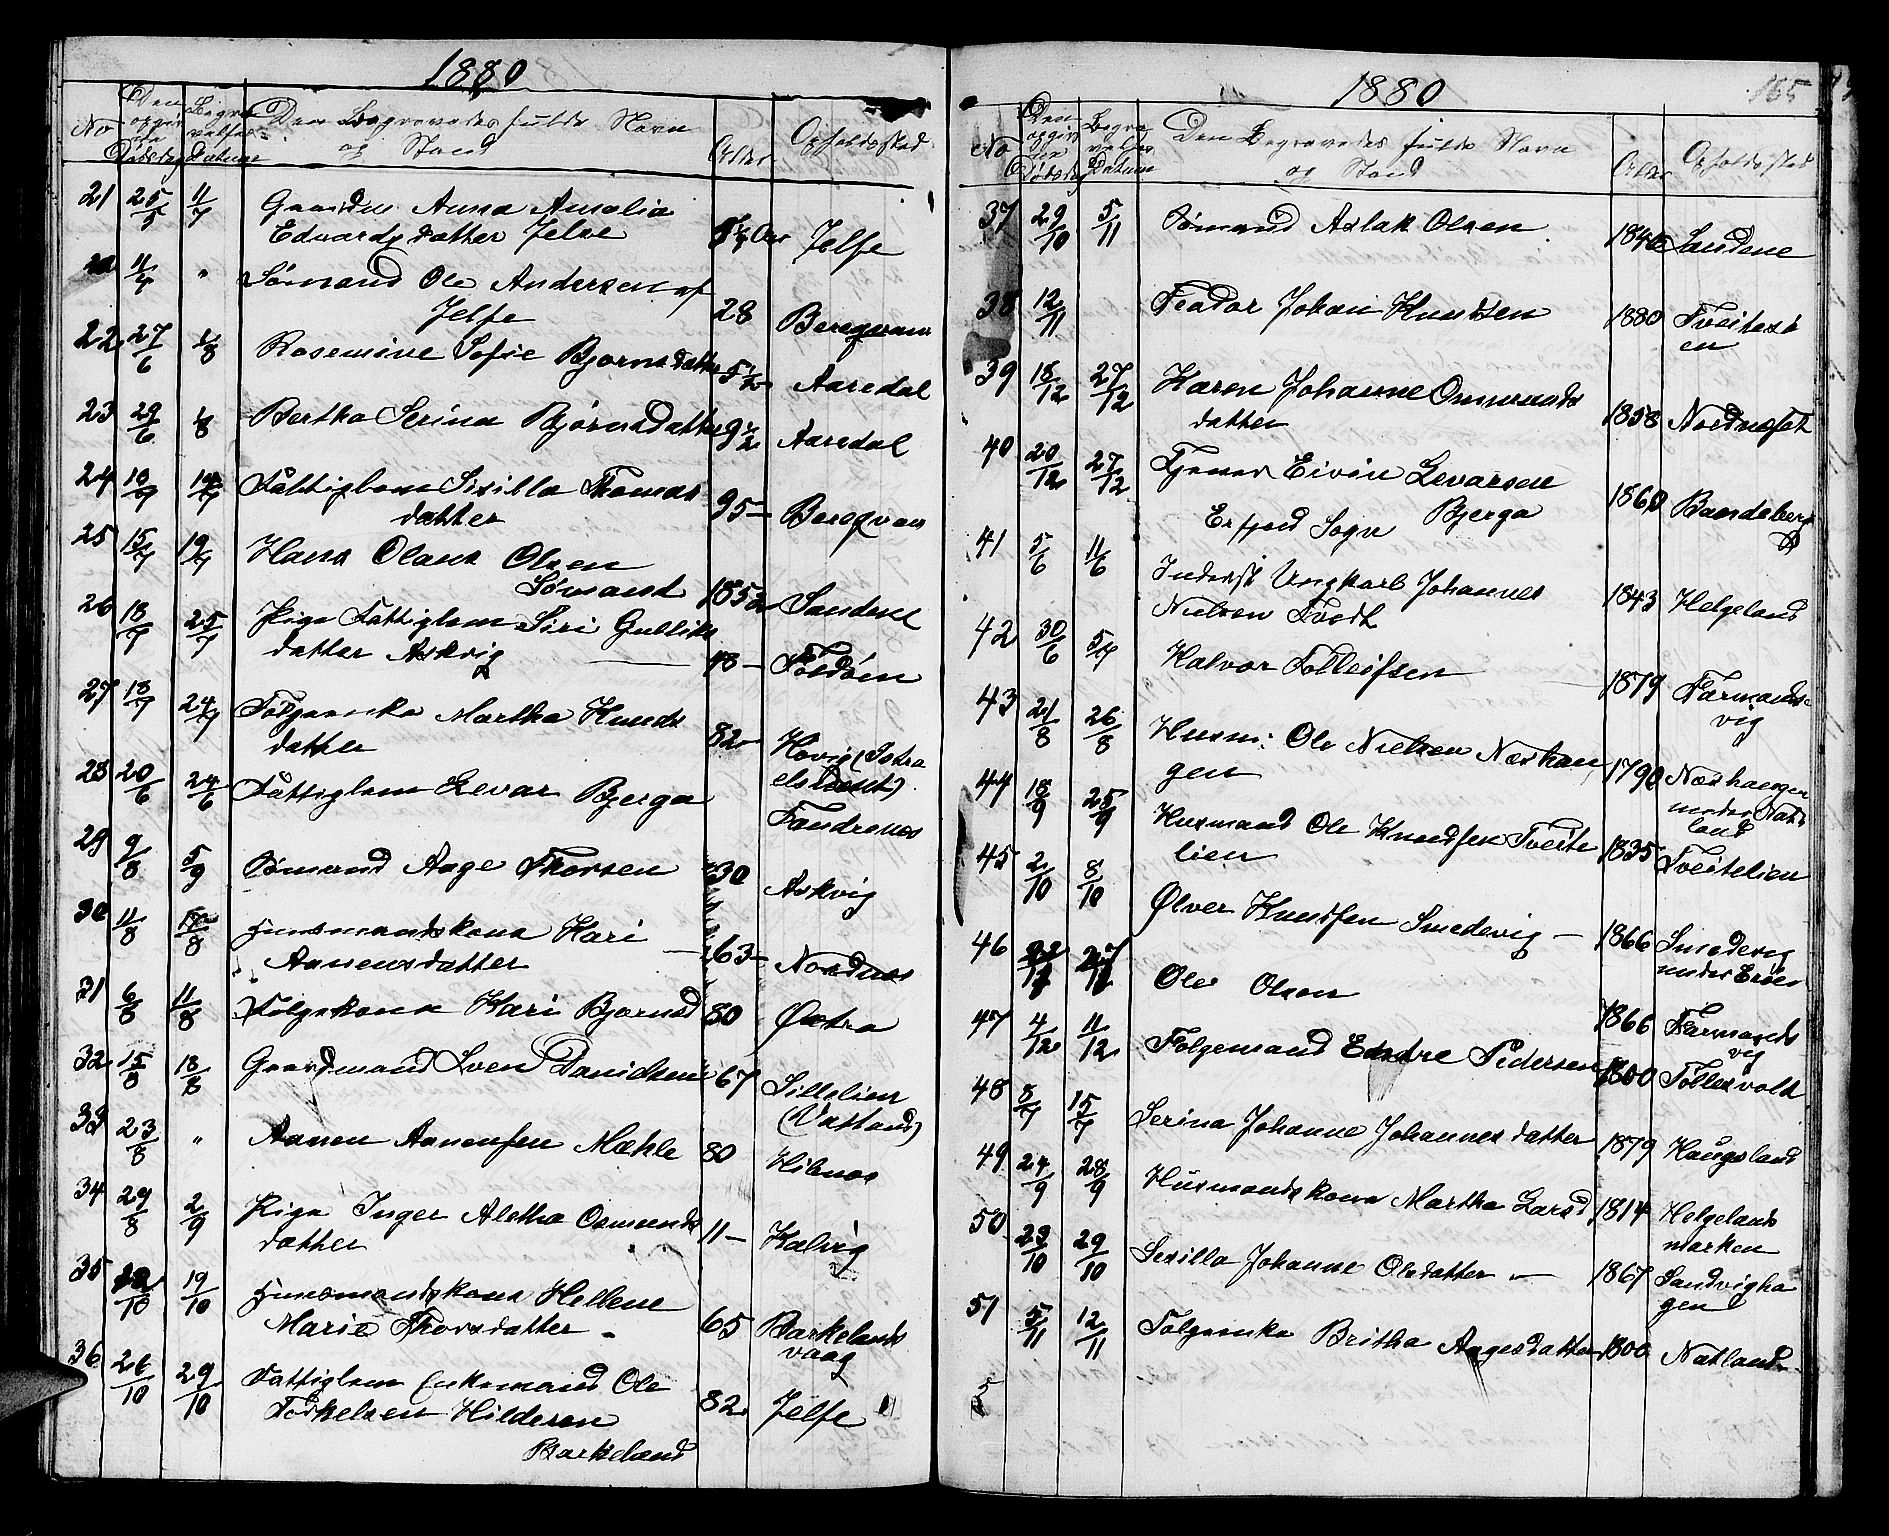 1880
No
Den opgivne Dødsdag
Begravelses Datum
Den Begravedes fulde Navn og Stand
Alder
Opholdssted
21 25/5 11/7 Anna Amalia
Edvardsdatter Jelse Jelse
11/7 " Sømand Ole Andersen af
Jelse 28
22 27/6 1/8 Rosemine Sofie Bjørnsdatter 5½ Aaredal
23 29/6 1/8 Bertha Serina Bjørnsdatter 9½ Aaredal
24 10/7 Fattiglem Sisilla Thomas
datter 95–
25 15/7 19/7 Hans Olaus Olsen
Sømand 1852 Sandene
26 18/7 25/7 Pige Fattiglem Siri Gulliks
datter Askvig 48–
27 18/7 24/7 Følgeenke Martha Knuds
datter 82– Hovig
28 20/6 24/6 Fattiglem Levar Bjerga
29 9/8 5/9 Sømand Aage Thorsen 30 Askvig
30 11/8 Huusmandskona Kari
Aanensdatter 63– Nordnes
31 6/8 11/8 Følgekona Kari Bjørnsd 80 Østrø
32 15/8 18/8 Gaardmand Sven Davidsen 67 Lillelien
(Vatland)
33 23/8 " Aanen Aanensen Mæhle 80 Hibnes
34 29/8 2/9 Pige Inger Alethe Osmunds
datter 11– Kalvig
35 19/10 Huusmandskona Hellene
Marie Thorsdatter 65 Barkelands
vaag
36 26/10 29/10 Fattiglem Enkemand Ole
Torkelsen Hilderen 82 Jelse
Barkeland
1880
165
No
Den opgivne Dødsdag
Begravelses Datum
Den Begravedes fulde Navn og Stand
Alder
Opholdssted
37 29/10 5/11 Sømand Aslak Olsen 1846 Sandene
38 12/11 Feador Johan Knudsen 1880
39 18/12 27/12 Karen Johanne Osmunds
datter 1858
40 20/12 27/12 Tjener Eivin Levarsen
Bjerga 1860
Erfjord Sogn
41 5/6 11/6 Inderst Ungkarl Johannes
Nielsen Tvedt 1843 Helgeland
42 30/6 5/7 Halvor Tolleifsen 1879 Farmands-
vig
43 21/8 26/8 Husm: Ole Nielsen Næshan
gen 1790 Næshaugen
under Nat-
land
44 18/9 25/9 Husmand Ole Knudsen Tveite
lien 1835 Tveitelien
45 2/10 8/10 Ølver Knudsen Smedevig – 1866 Smedevig
under
46 Ole Olsen 1866 Farmands
vig
47 4/12 11/12 Følgemand Endre Pedersen 1800 Tøllesvold
48 8/7 15/7 Serina Johanne Johannesdatter 1879 Haugsland
49 24/9 28/9 Husmandskona Martha Larsd 1814 Helgelands
marken
50 23/10 29/10 Sesilla Johanne Olsdatter – 1867 Sandvigha
gen
51 5/11 12/11 Følgeenke Britha Aagesdatter 1800 Natland
5